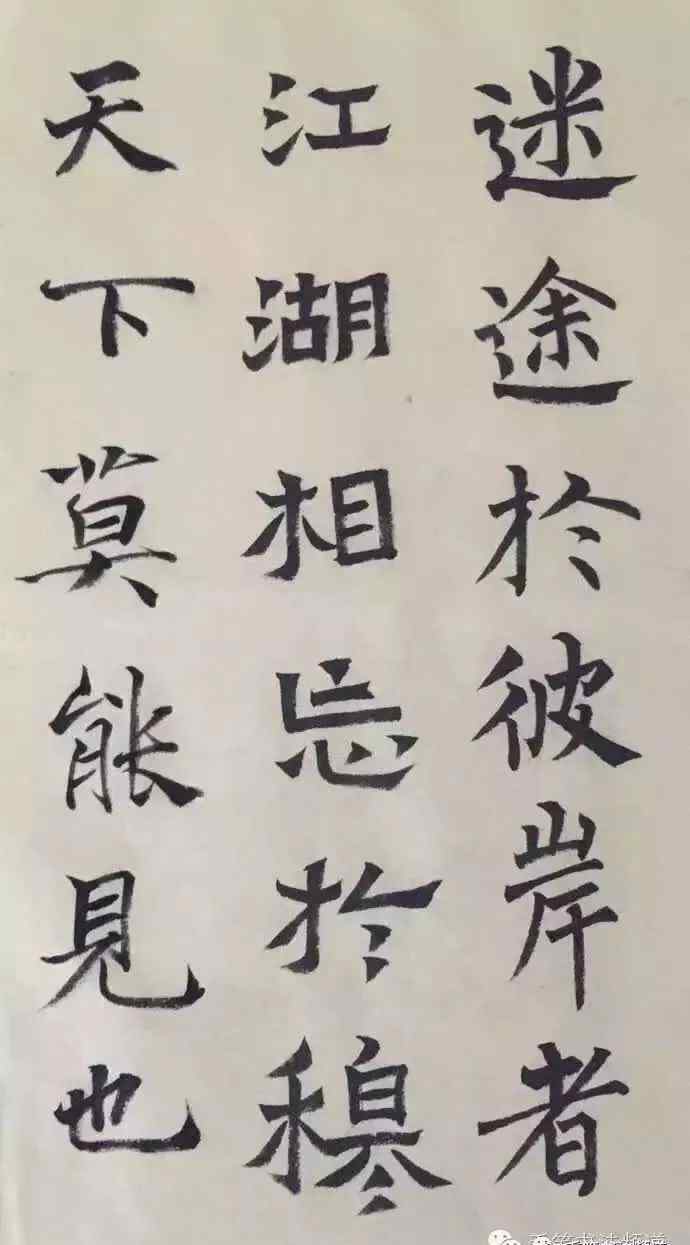 迷途於彼岸者
江湖相忘於穆
天下莫能見也